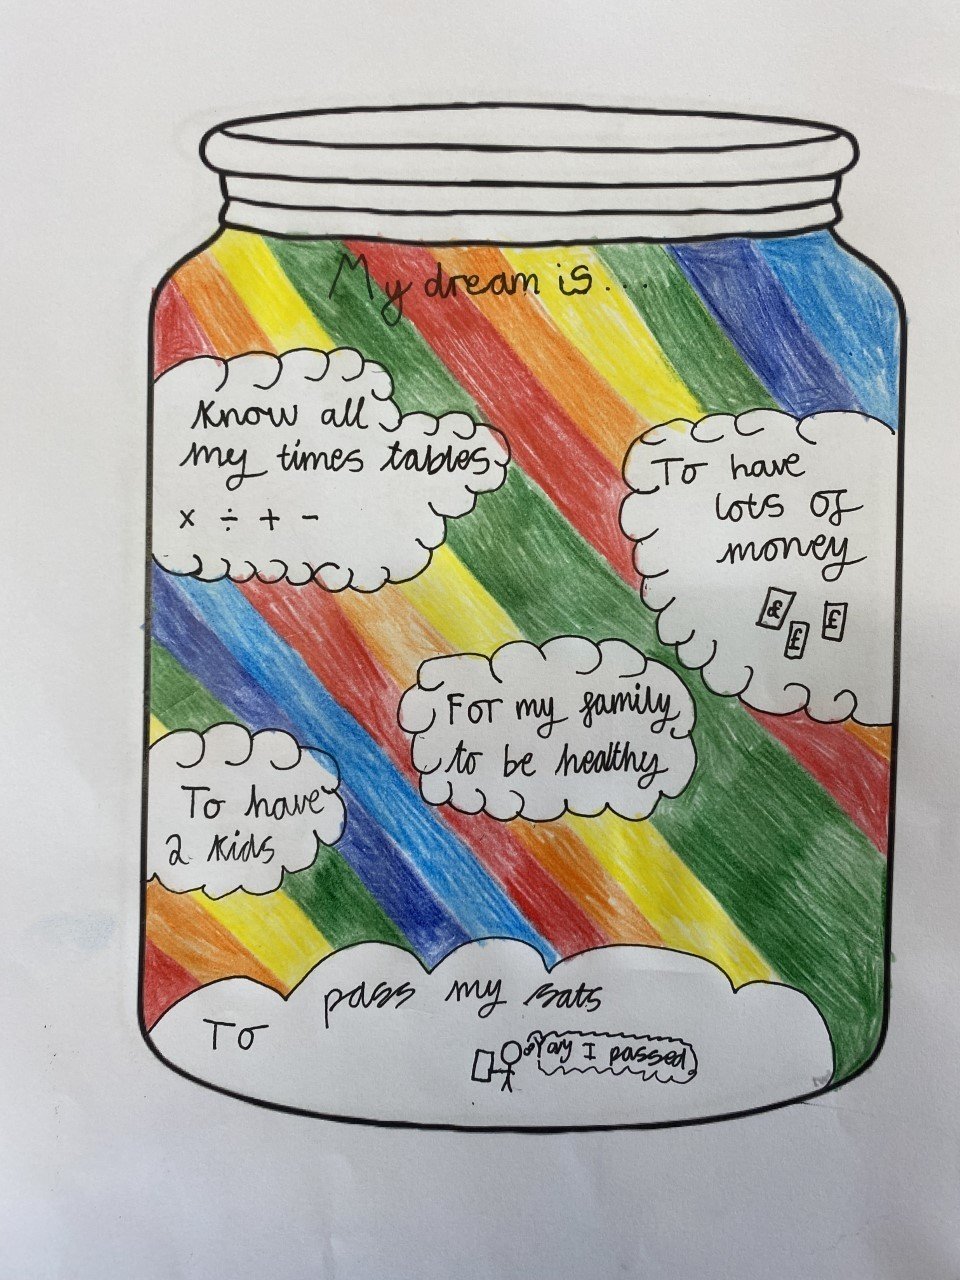 My dream is...
Know all
my times tables
× ÷ + -
To have
lots of
money
£ £ £
For my family
to be healthy
To have
2 kids
To pass my sats
Yay I passed